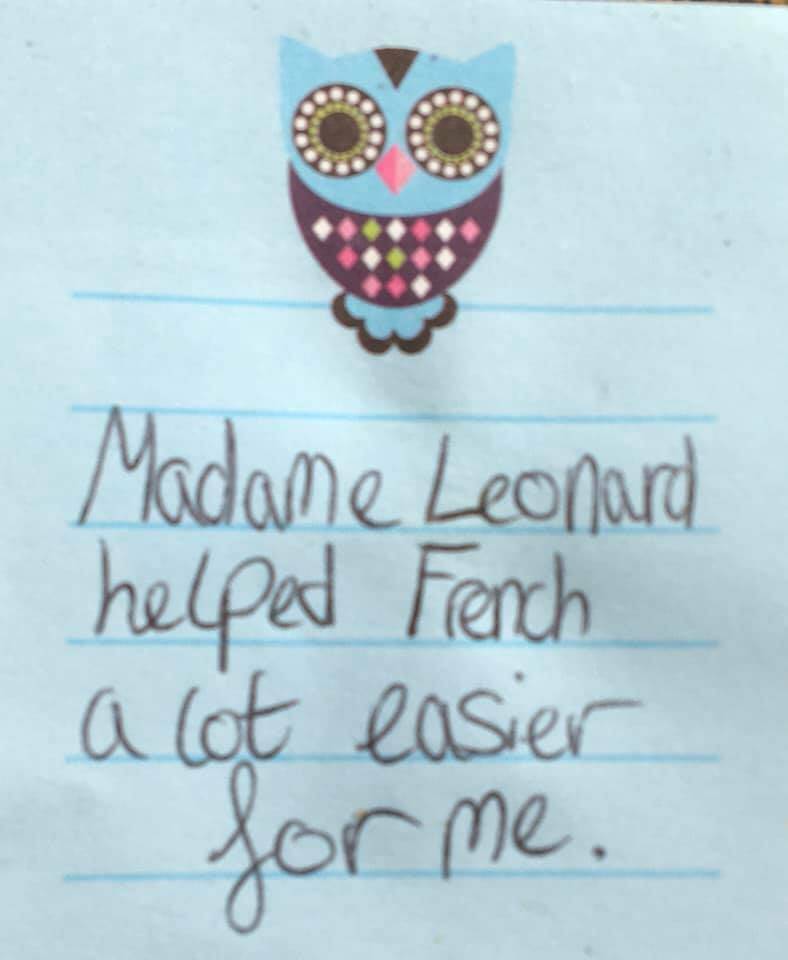 Madame Leonard
helped French
a lot easier
for me.